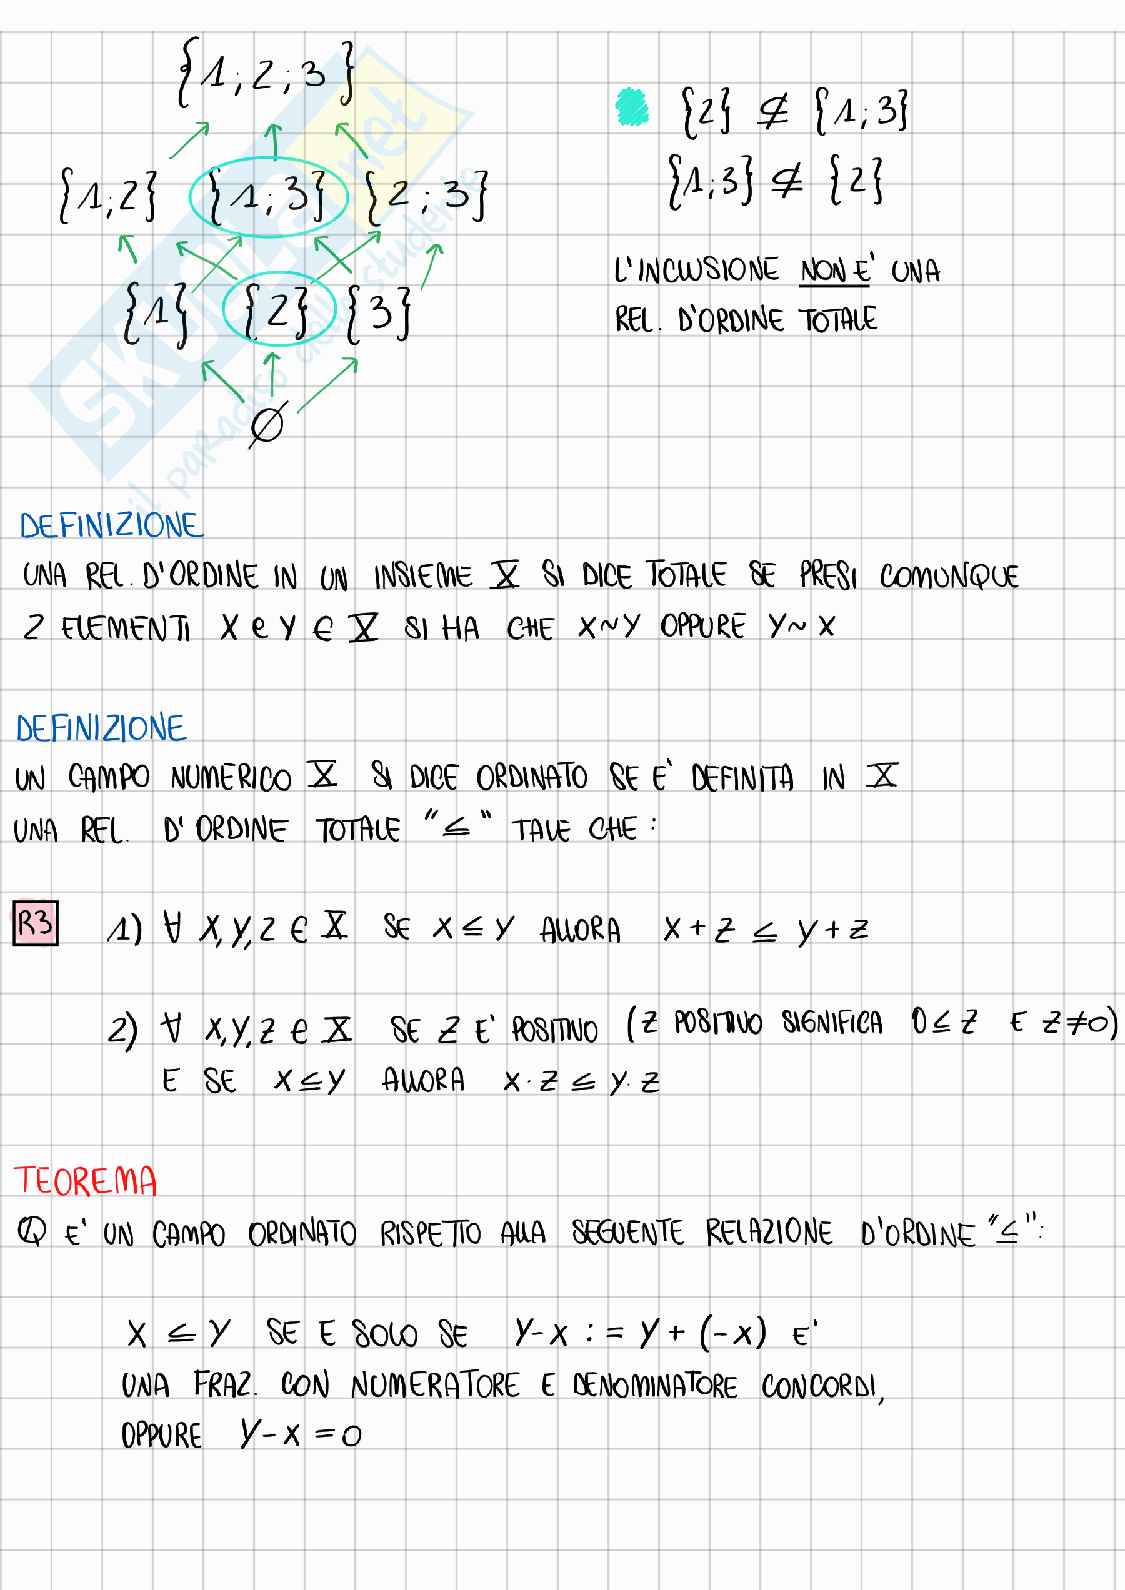 {1;2;3}
{1;2} {1;3} {2;3}
{1} {2} {3}
∅
{2} ⊄ {1;3}
{1;3} ⊄ {2}
L'INCLUSIONE NON E' UNA
REL. D'ORDINE TOTALE
SKUOLA.net
il paradiso dello studente
DEFINIZIONE
UNA REL. D'ORDINE IN UN INSIEME X SI DICE TOTALE SE PRESI COMUNQUE
2 ELEMENTI X e Y ∈ X SI HA CHE X~Y OPPURE Y~X
DEFINIZIONE
UN CAMPO NUMERICO X SI DICE ORDINATO SE E' DEFINITA IN X
UNA REL. D'ORDINE TOTALE "≤" TALE CHE:
R3 1) ∀ X,Y,Z ∈ X SE X ≤ Y ALLORA X + Z ≤ Y + Z
2) ∀ X,Y,Z ∈ X SE Z E' POSITIVO (Z POSITIVO SIGNIFICA 0 ≤ Z E Z ≠ 0)
E SE X ≤ Y ALLORA X · Z ≤ Y · Z
TEOREMA
Q E' UN CAMPO ORDINATO RISPETTO ALLA SEGUENTE RELAZIONE D'ORDINE "≤":
X ≤ Y SE E SOLO SE Y-X := Y + (-X) E'
UNA FRAZ. CON NUMERATORE E DENOMINATORE CONCORDI,
OPPURE Y-X = 0